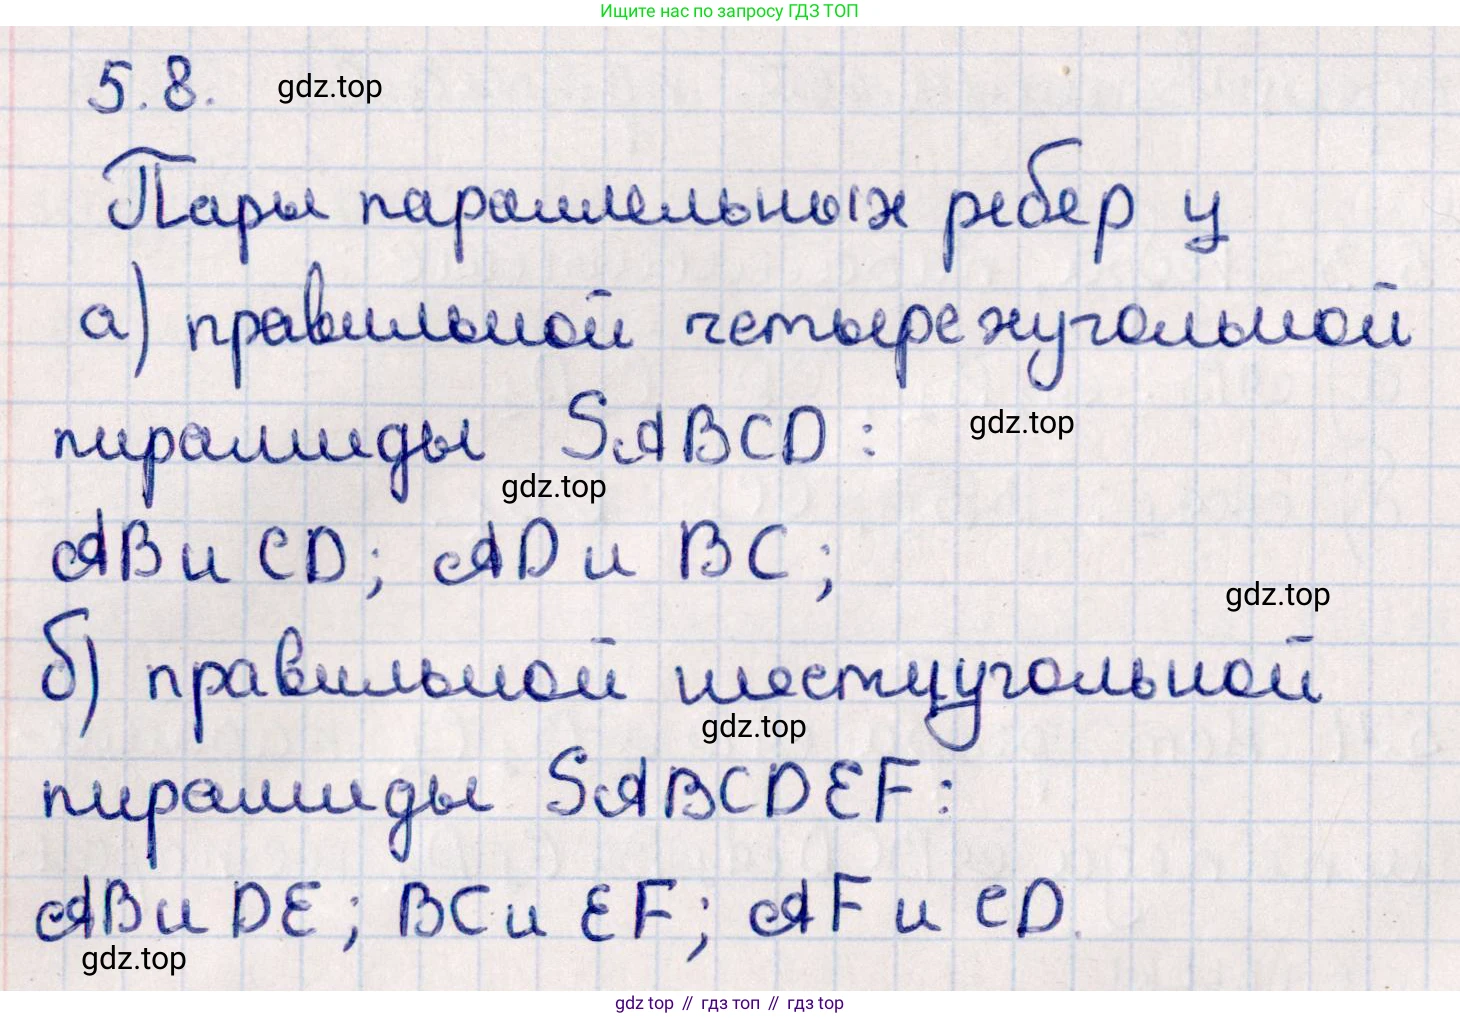 Ищите нас по запросу ГДЗ ТОП
5.8. gdz.top
Пары параллельных ребер у
а) правильной четырехугольной
пирамиды SABCD: gdz.top
gdz.top
AB и CD; AD и BC;
gdz.top
б) правильной шестиугольной
gdz.top
пирамиды SABCDEF:
AB и DE; BC и EF; AF и CD.
gdz.top
gdz top // гдз топ // гдз top